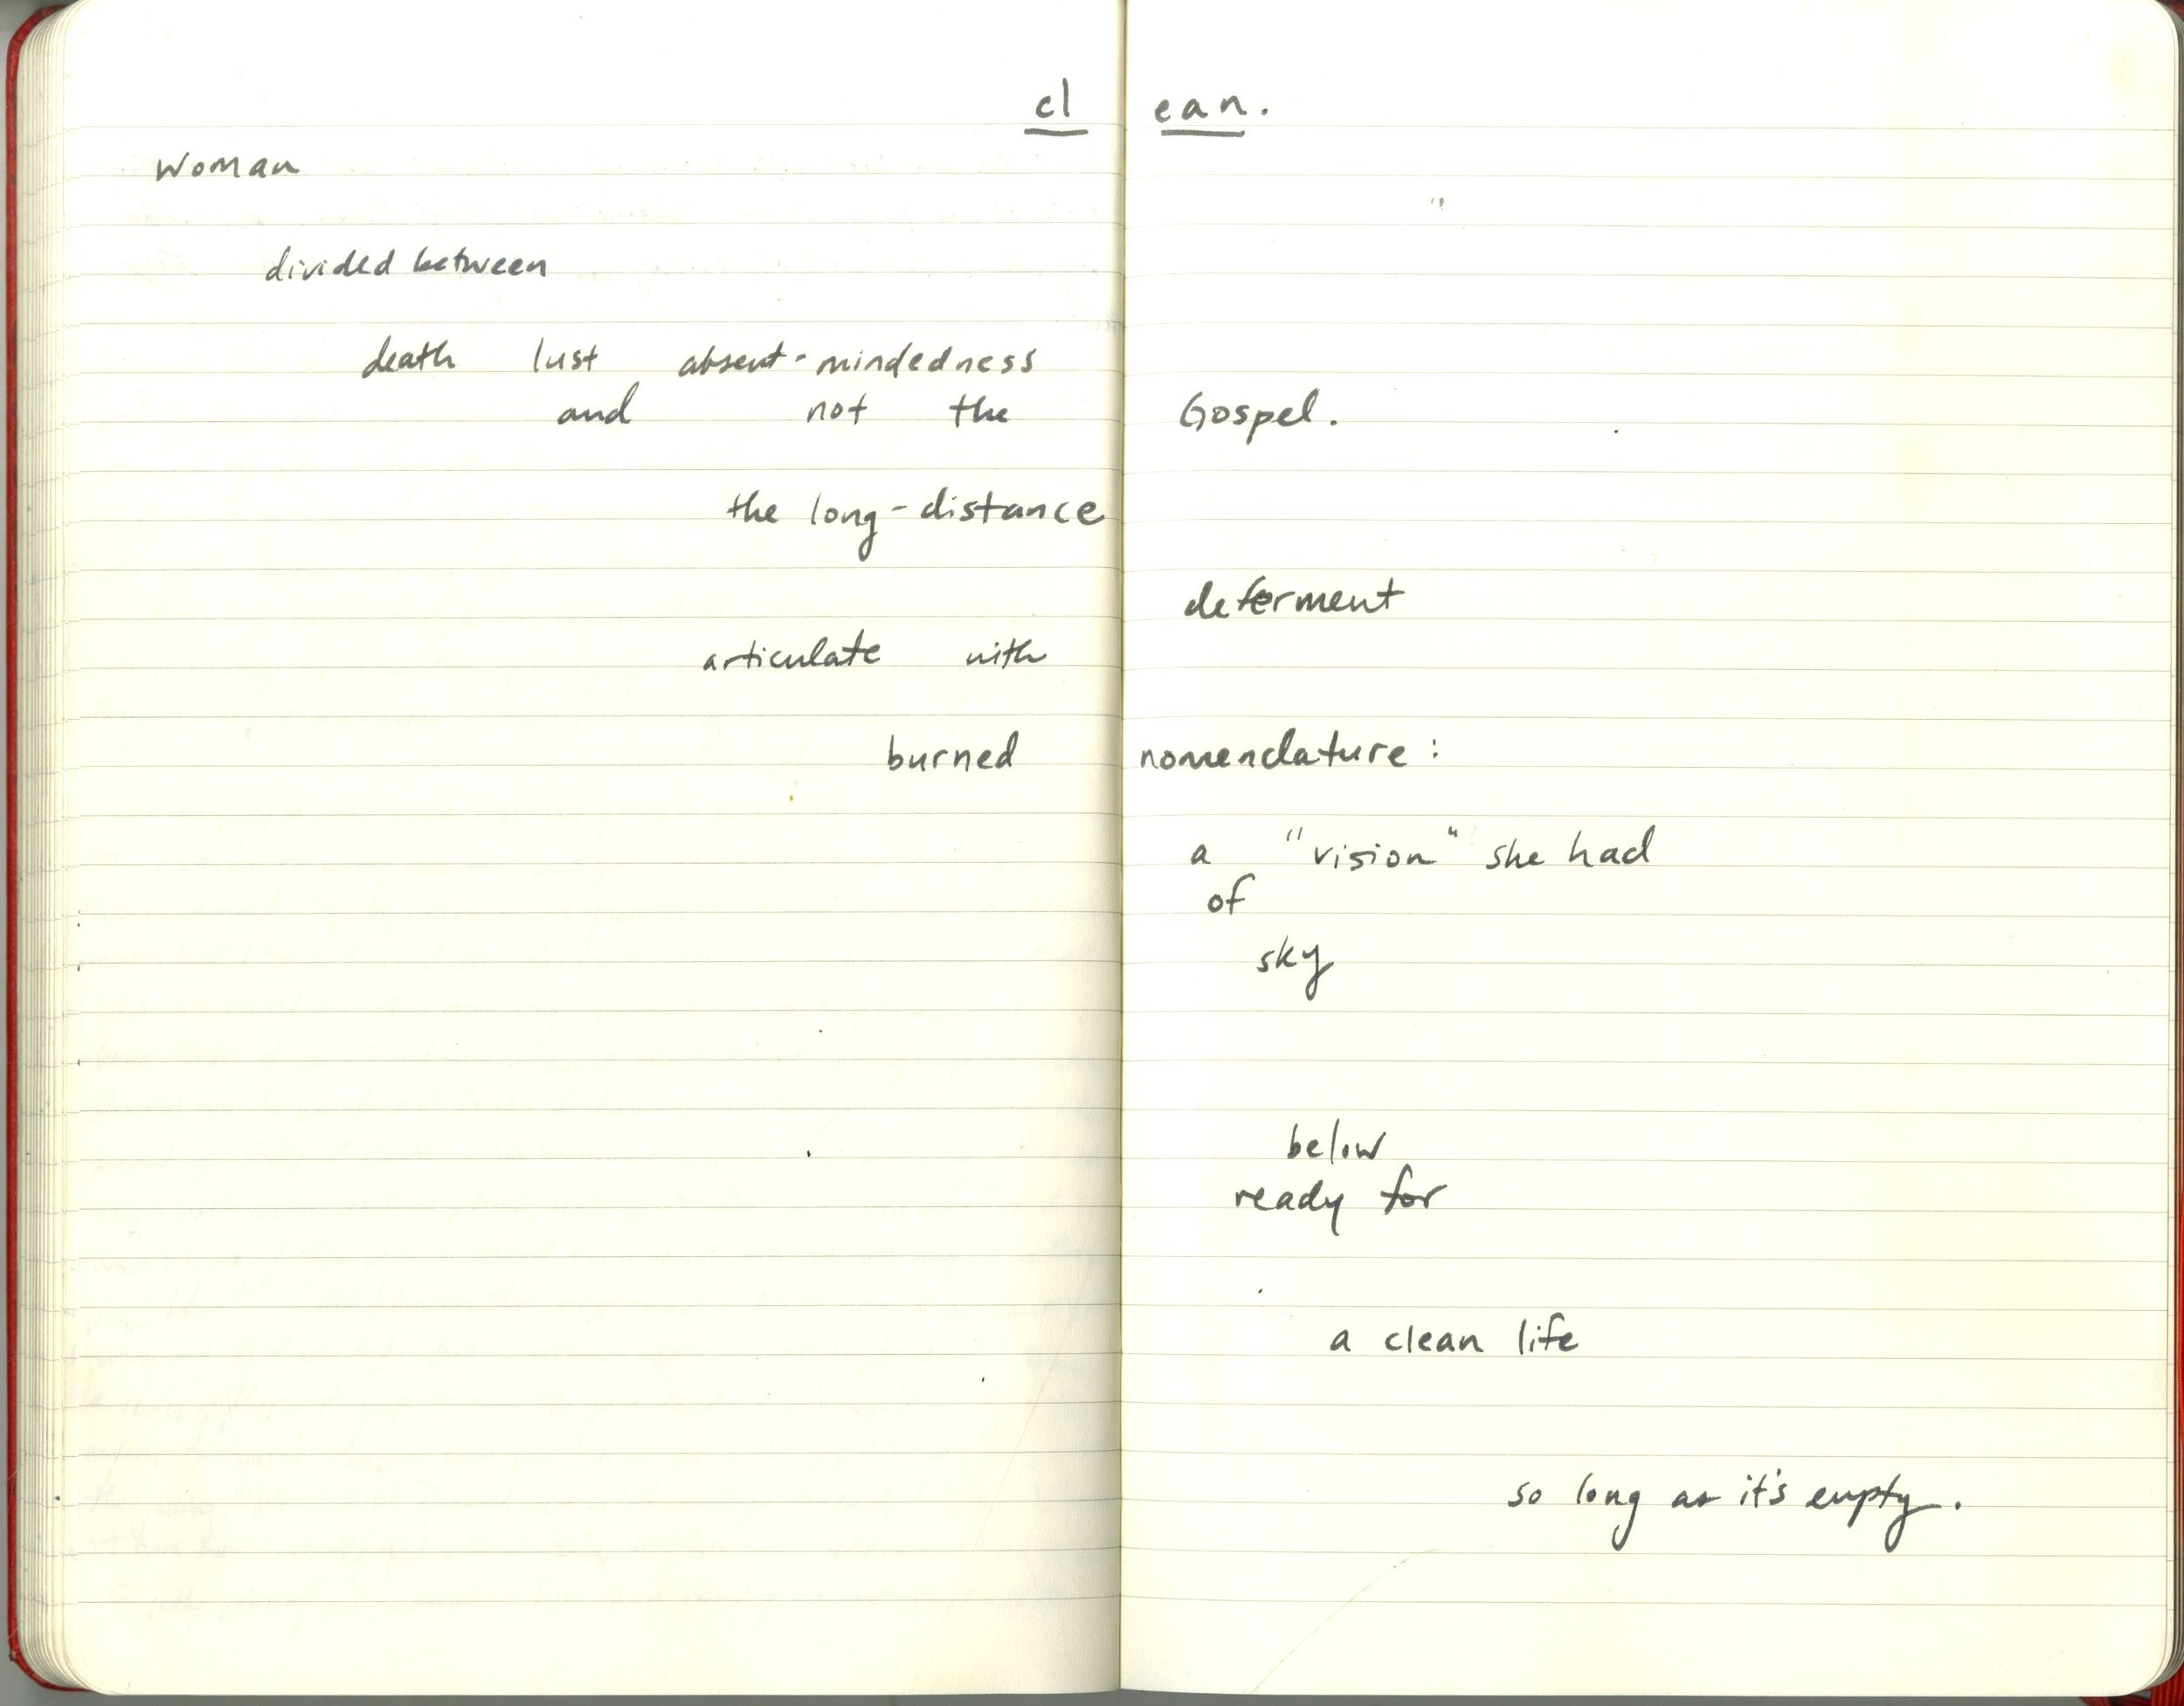 cl ean.
Woman
divided between
death lust absent-mindedness
and not the Gospel.
the long-distance
deferment
articulate with
burned nomenclature:
a "vision" she had
of
sky
below
ready for
a clean life
so long as it's empty.